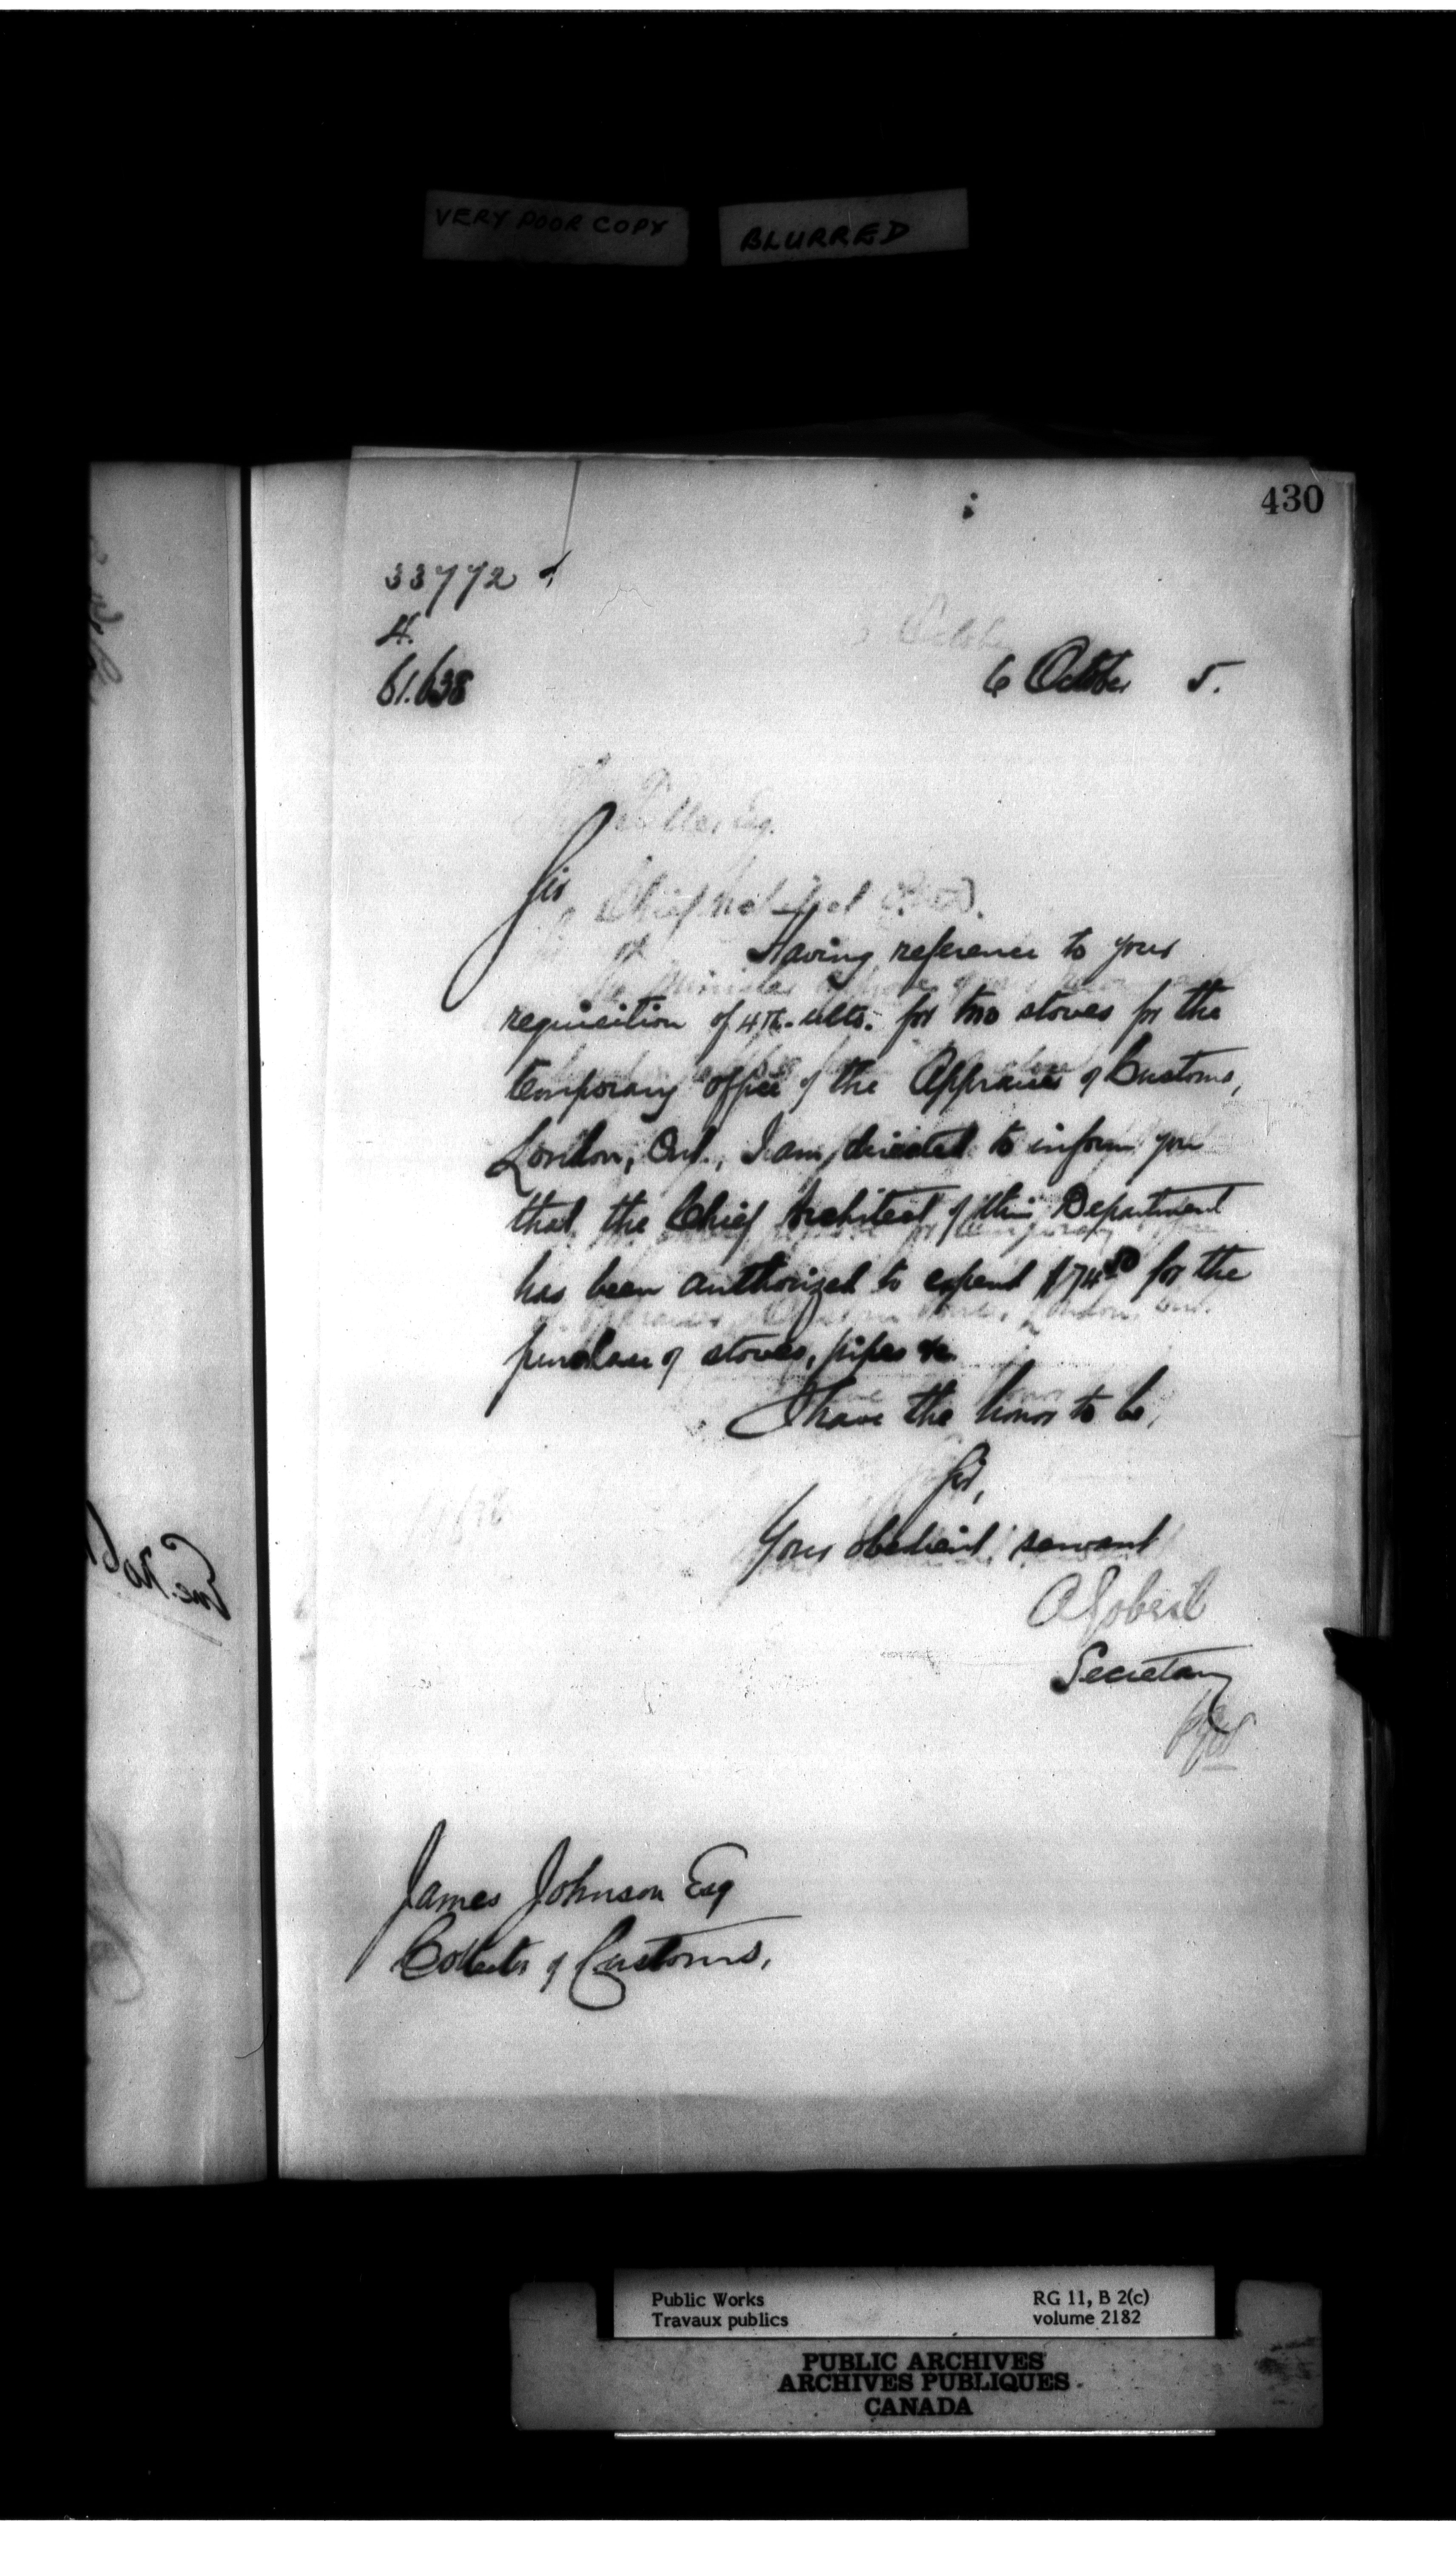 VERY POOR COPY BLURRED
430
33772
H.
61.638
6 October 5.
Sir,
Having reference to your
requisition of 4th. ulto. for two stoves for the
temporary office of the Appraiser of Customs,
London, Ont., I am directed to inform you
that the Chief Architect of this Department
has been authorized to expend $74.50 for the
purchase of stoves, pipes &c.
I have the honor to be,
Sir,
Your obedient servant
A Gobeil
Secretary
James Johnson Esq
Collector of Customs,
Public Works RG 11, B 2(c)
Travaux publics volume 2182
PUBLIC ARCHIVES
ARCHIVES PUBLIQUES
CANADA